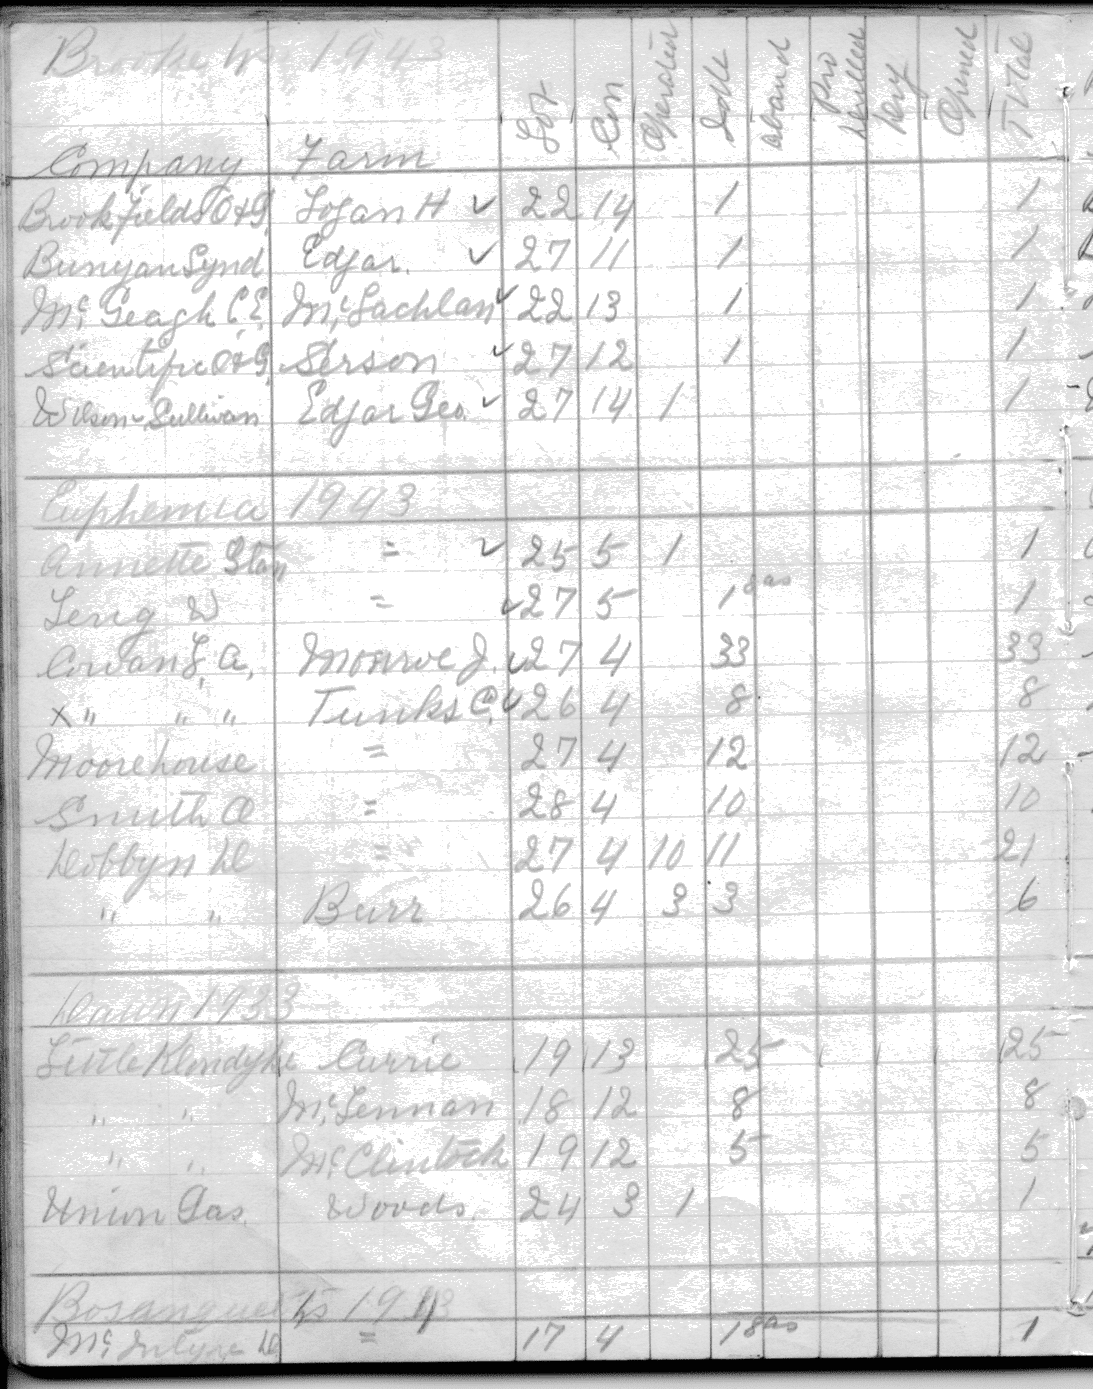 Brooke Tp 1943
Company Farm Lot Con Operated Idle Aband Pro Drilled Dry Opened Total
Brookfields O&G Logan H ✓ 22 14 1 1
Bunyan Synd Edgar. ✓ 27 11 1 1
McGeagh C.E. McLachlan ✓ 22 13 1 1
Scientific O&G Serson ✓ 27 12 1 1
Wilson-Sullivan Edgar Geo. ✓ 27 14 1 1
Euphemia 1943
Annette Stan = ✓ 25 5 1 1
Leng W = ✓ 27 5 1 gas 1
Cowan L.A. Monroe J. ✓ 27 4 33 33
x " " " Tunks C. ✓ 26 4 8 8
Moorehouse = 27 4 12 12
Smith A = 28 4 10 10
Dobbyn D = 27 4 10 11 21
" " Burr 26 4 3 3 6
Dawn 1933
Little Klondyke Currie 19 13 25 25
" " McLennan 18 12 8 8
" " McClintock 19 12 5 5
Union Gas. Woods. 24 3 1 1
Bosanquet Tp 19
McIntyre D = 17 4 1 gas 1